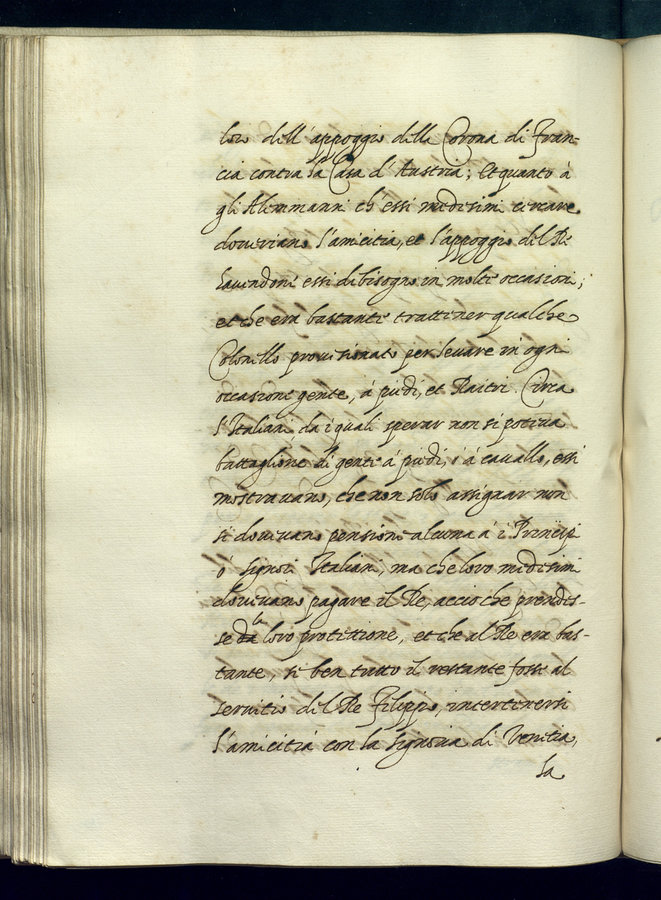 loro dell'appoggio della Corona di Fran-
cia contra la Casa d'Austria; Et quanto à
gli Alemmanni ch'essi medesimi cercare
doveriano l'amicitia, et l'appoggio del Rè
havendone essi di bisogno in molte occasioni;
et che era bastante trattener qualche
Colonello provisionato per levare in ogni
occasione gente, à piedi, et Raitri. Circa
l'Italiani da i quali sperar non si poteva
battaglione di gente à piedi, ò à cavallo, essi
mostravano, che non solo assignar non
si dovevano pensione alcuna à i Principi
ò signori Italiani, ma che loro medesimi
dovevano pagare il Rè, acciò che prendes-
se la loro protettione, et che al Rè era bas-
tante, se ben tutto il restante fosse al
servitio del Rè Filippo, intertenersi
l'amicitia con la signoria di Venetia,
la